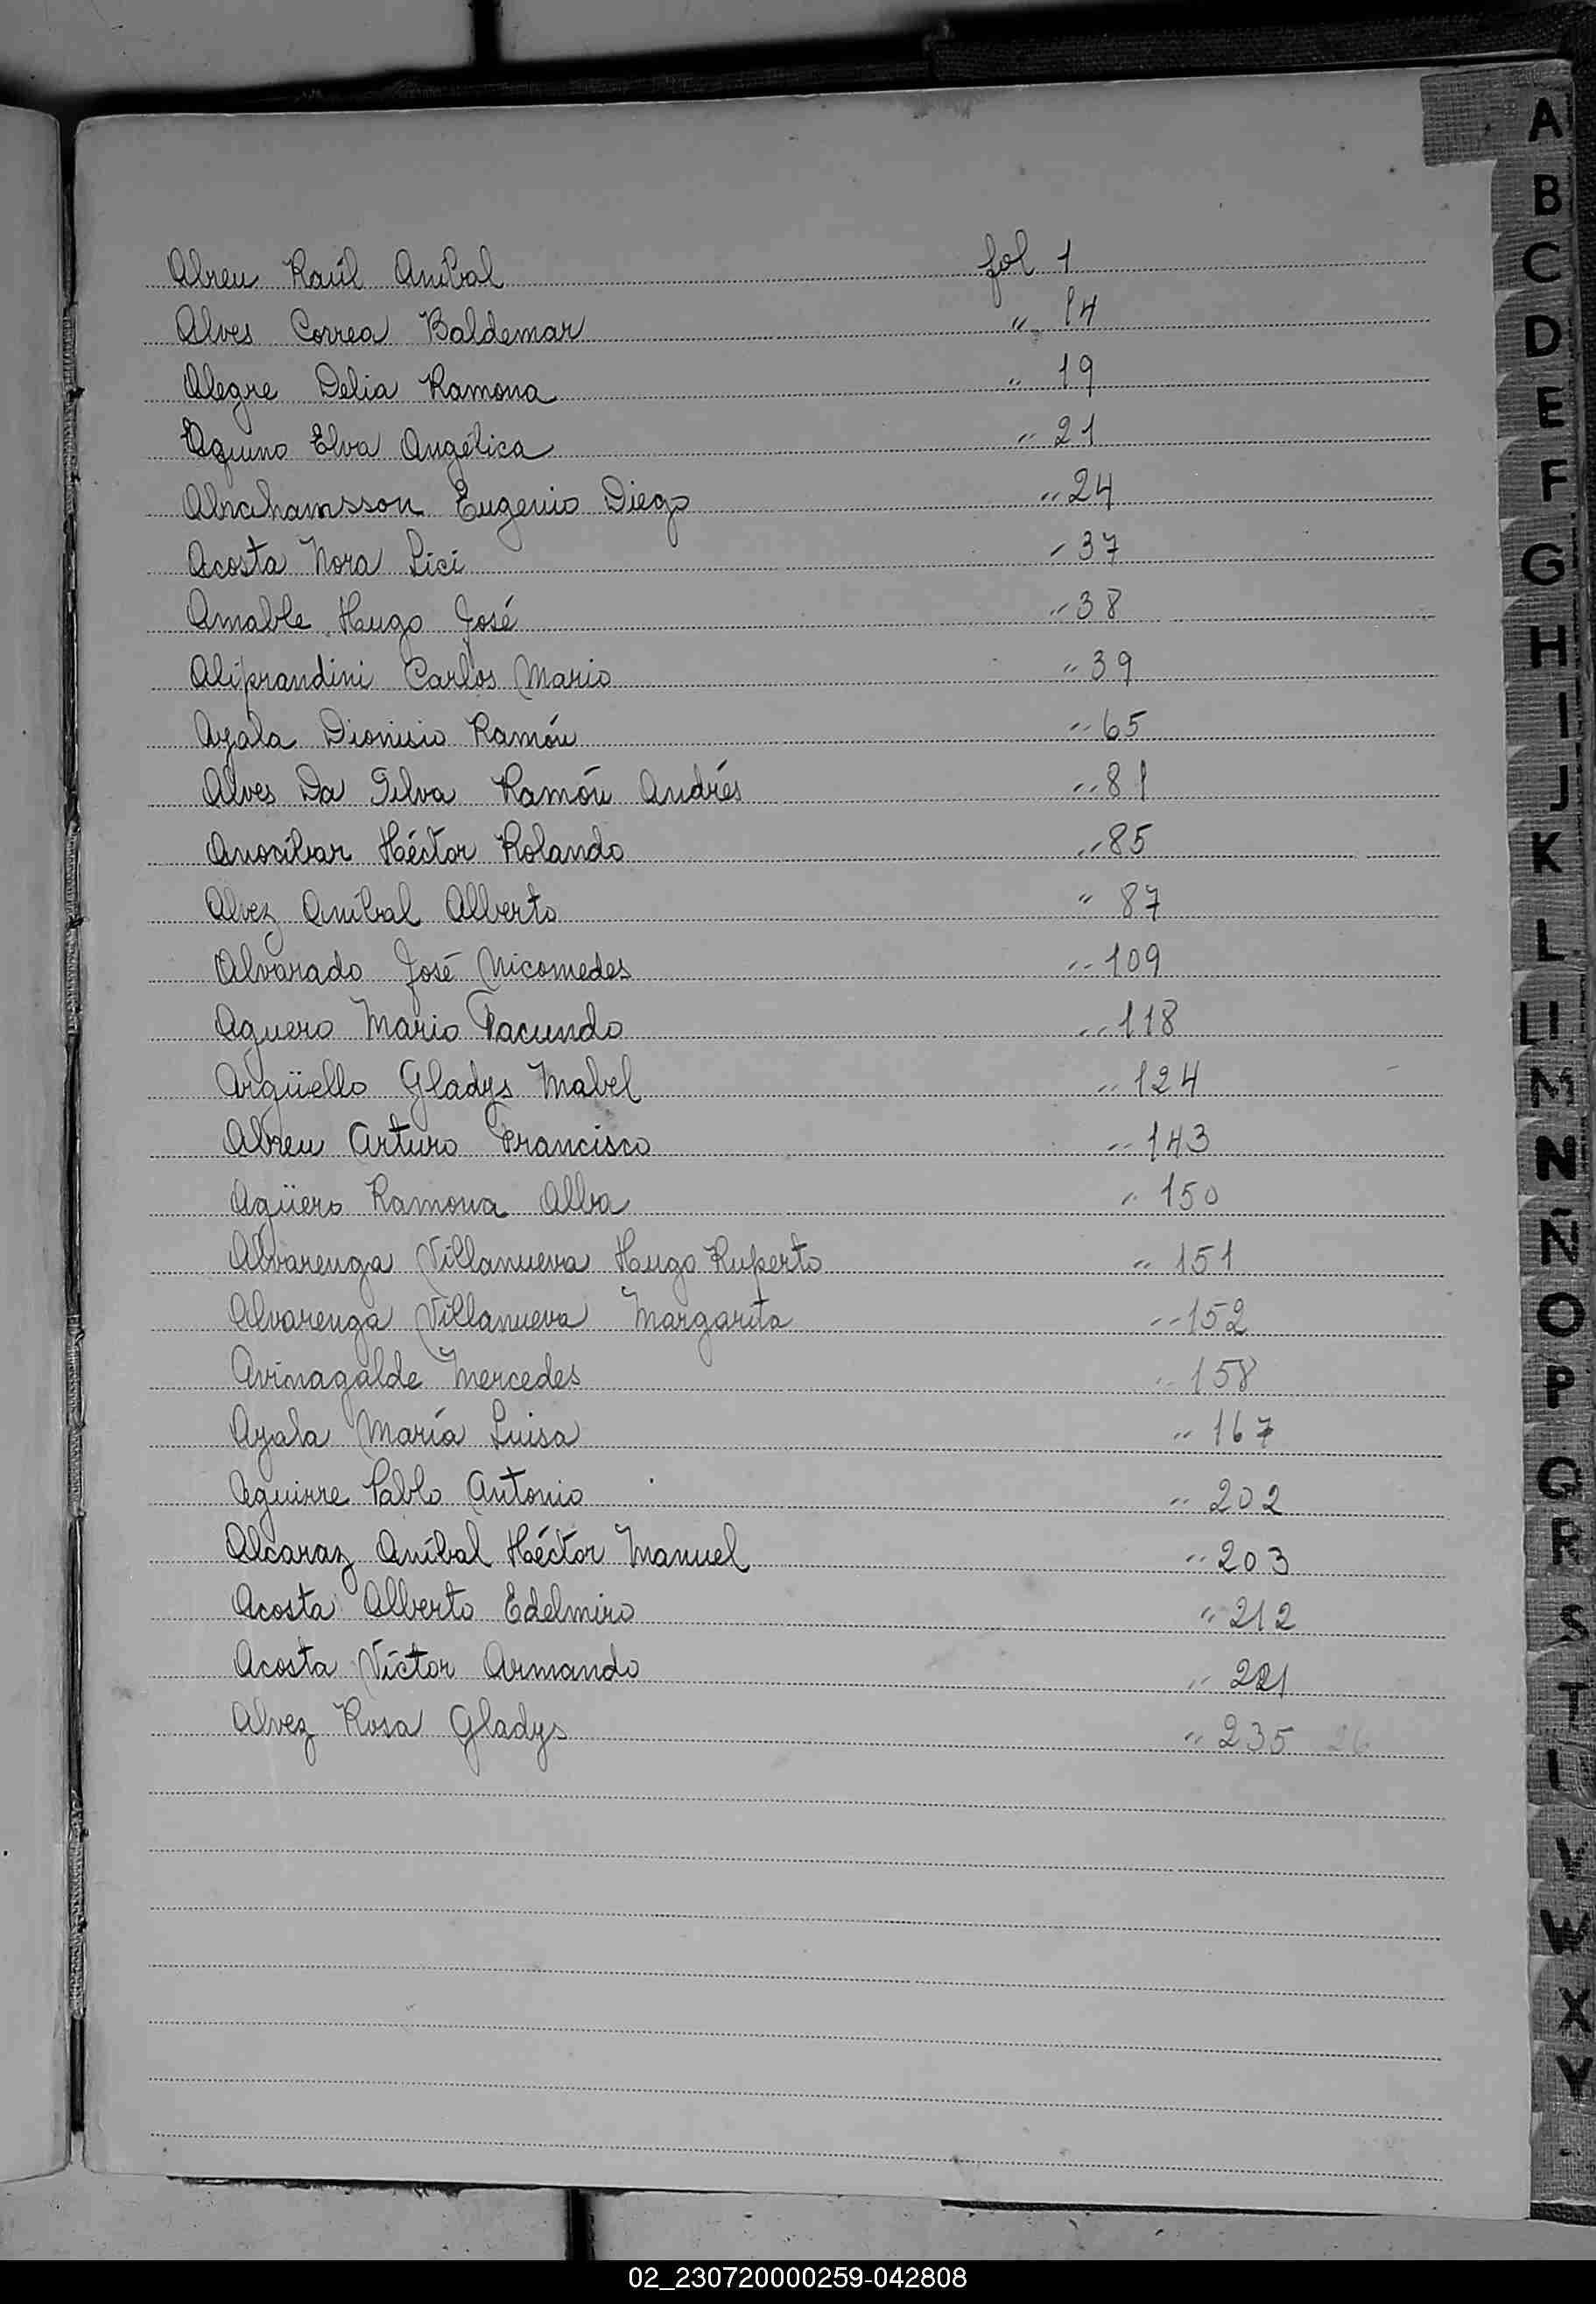 Abreu Raúl Aníbal fol 1
Alves Correa Baldemar " 14
Alegre Delia Ramona " 19
Aquino Elva Angélica " 21
Abrahamsson Eugenio Diego " 24
Acosta Nora Lici " 37
Amable Hugo José " 38
Aliprandini Carlos Mario " 39
Ayala Dionisio Ramón " 65
Alves Da Silva Ramón Andrés " 81
Anocíbar Héctor Rolando " 85
Alvez Aníbal Alberto " 87
Alvarado José Nicomedes " 109
Aguero Mario Facundo " 118
Argüello Gladys Mabel " 124
Abreu Arturo Francisco " 143
Agüero Ramona Alba " 150
Alvarenga Villanueva Hugo Ruperto " 151
Alvarenga Villanueva Margarita " 152
Avinagalde Mercedes " 158
Ayala María Luisa " 167
Aguirre Pablo Antonio " 202
Alcaraz Aníbal Héctor Manuel " 203
Acosta Alberto Edelmiro " 212
Acosta Víctor Armando " 221
Alvez Rosa Gladys " 235 26
A
B
C
D
E
F
G
H
I
J
K
L
LL
M
N
Ñ
O
P
Q
R
S
T
V
W
X
Y
02_230720000259-042808